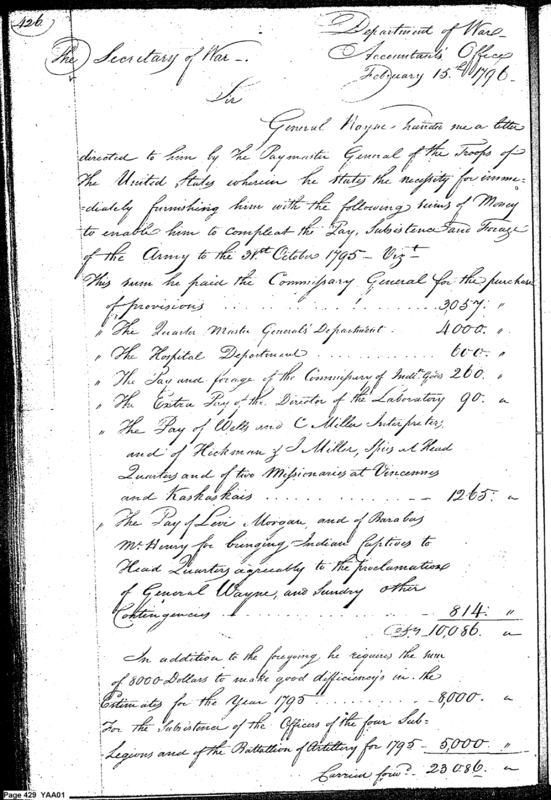 426
Department of War
Accountants Office
February 15th 1796
The Secretary of War
Sir
General Wayne handed me a letter
directed to him by the Paymaster General of the Troops of
the United States wherein he states the necessity for imme-
diately furnishing him with the following sums of Money
to enable him to compleat the Pay, Subsistence and Forage
of the Army to the 31st October 1795 - Vizt
This sum he paid the Commissary General for the purchase
of provisions 3,057. "
" The Quarter Master Generals Department 4000. "
" The Hospital Department 600. "
" The Pay and forage of the Commissary of Indn Gds 260. "
" The Extra Pay of the Director of the Laboratory 90. "
" The Pay of Wells and C Miller Interpreters,
and of Hickman & J Miller, Spies at Head
Quarters and of two Missionaries at Vincennes
and Kaskaskais 1265. "
" The Pay of Levi Morgan, and of Barabas
McHenry for bringing Indian Captives to
Head Quarters agreeably to the proclamation
of General Wayne, and Sundry other
Contingencies 814. "
10,086. "
In addition to the foregoing he requires the sum
of 8000 Dollars to make good difficiency's in the
Estimates for the Year 1795 8,000. "
For the Subsistence of the Officers of the four Sub-
Legions and of the Battalion of Artillery for 1795 5,000 "
Carried forwd. 23086. "
Page 429 YAA01